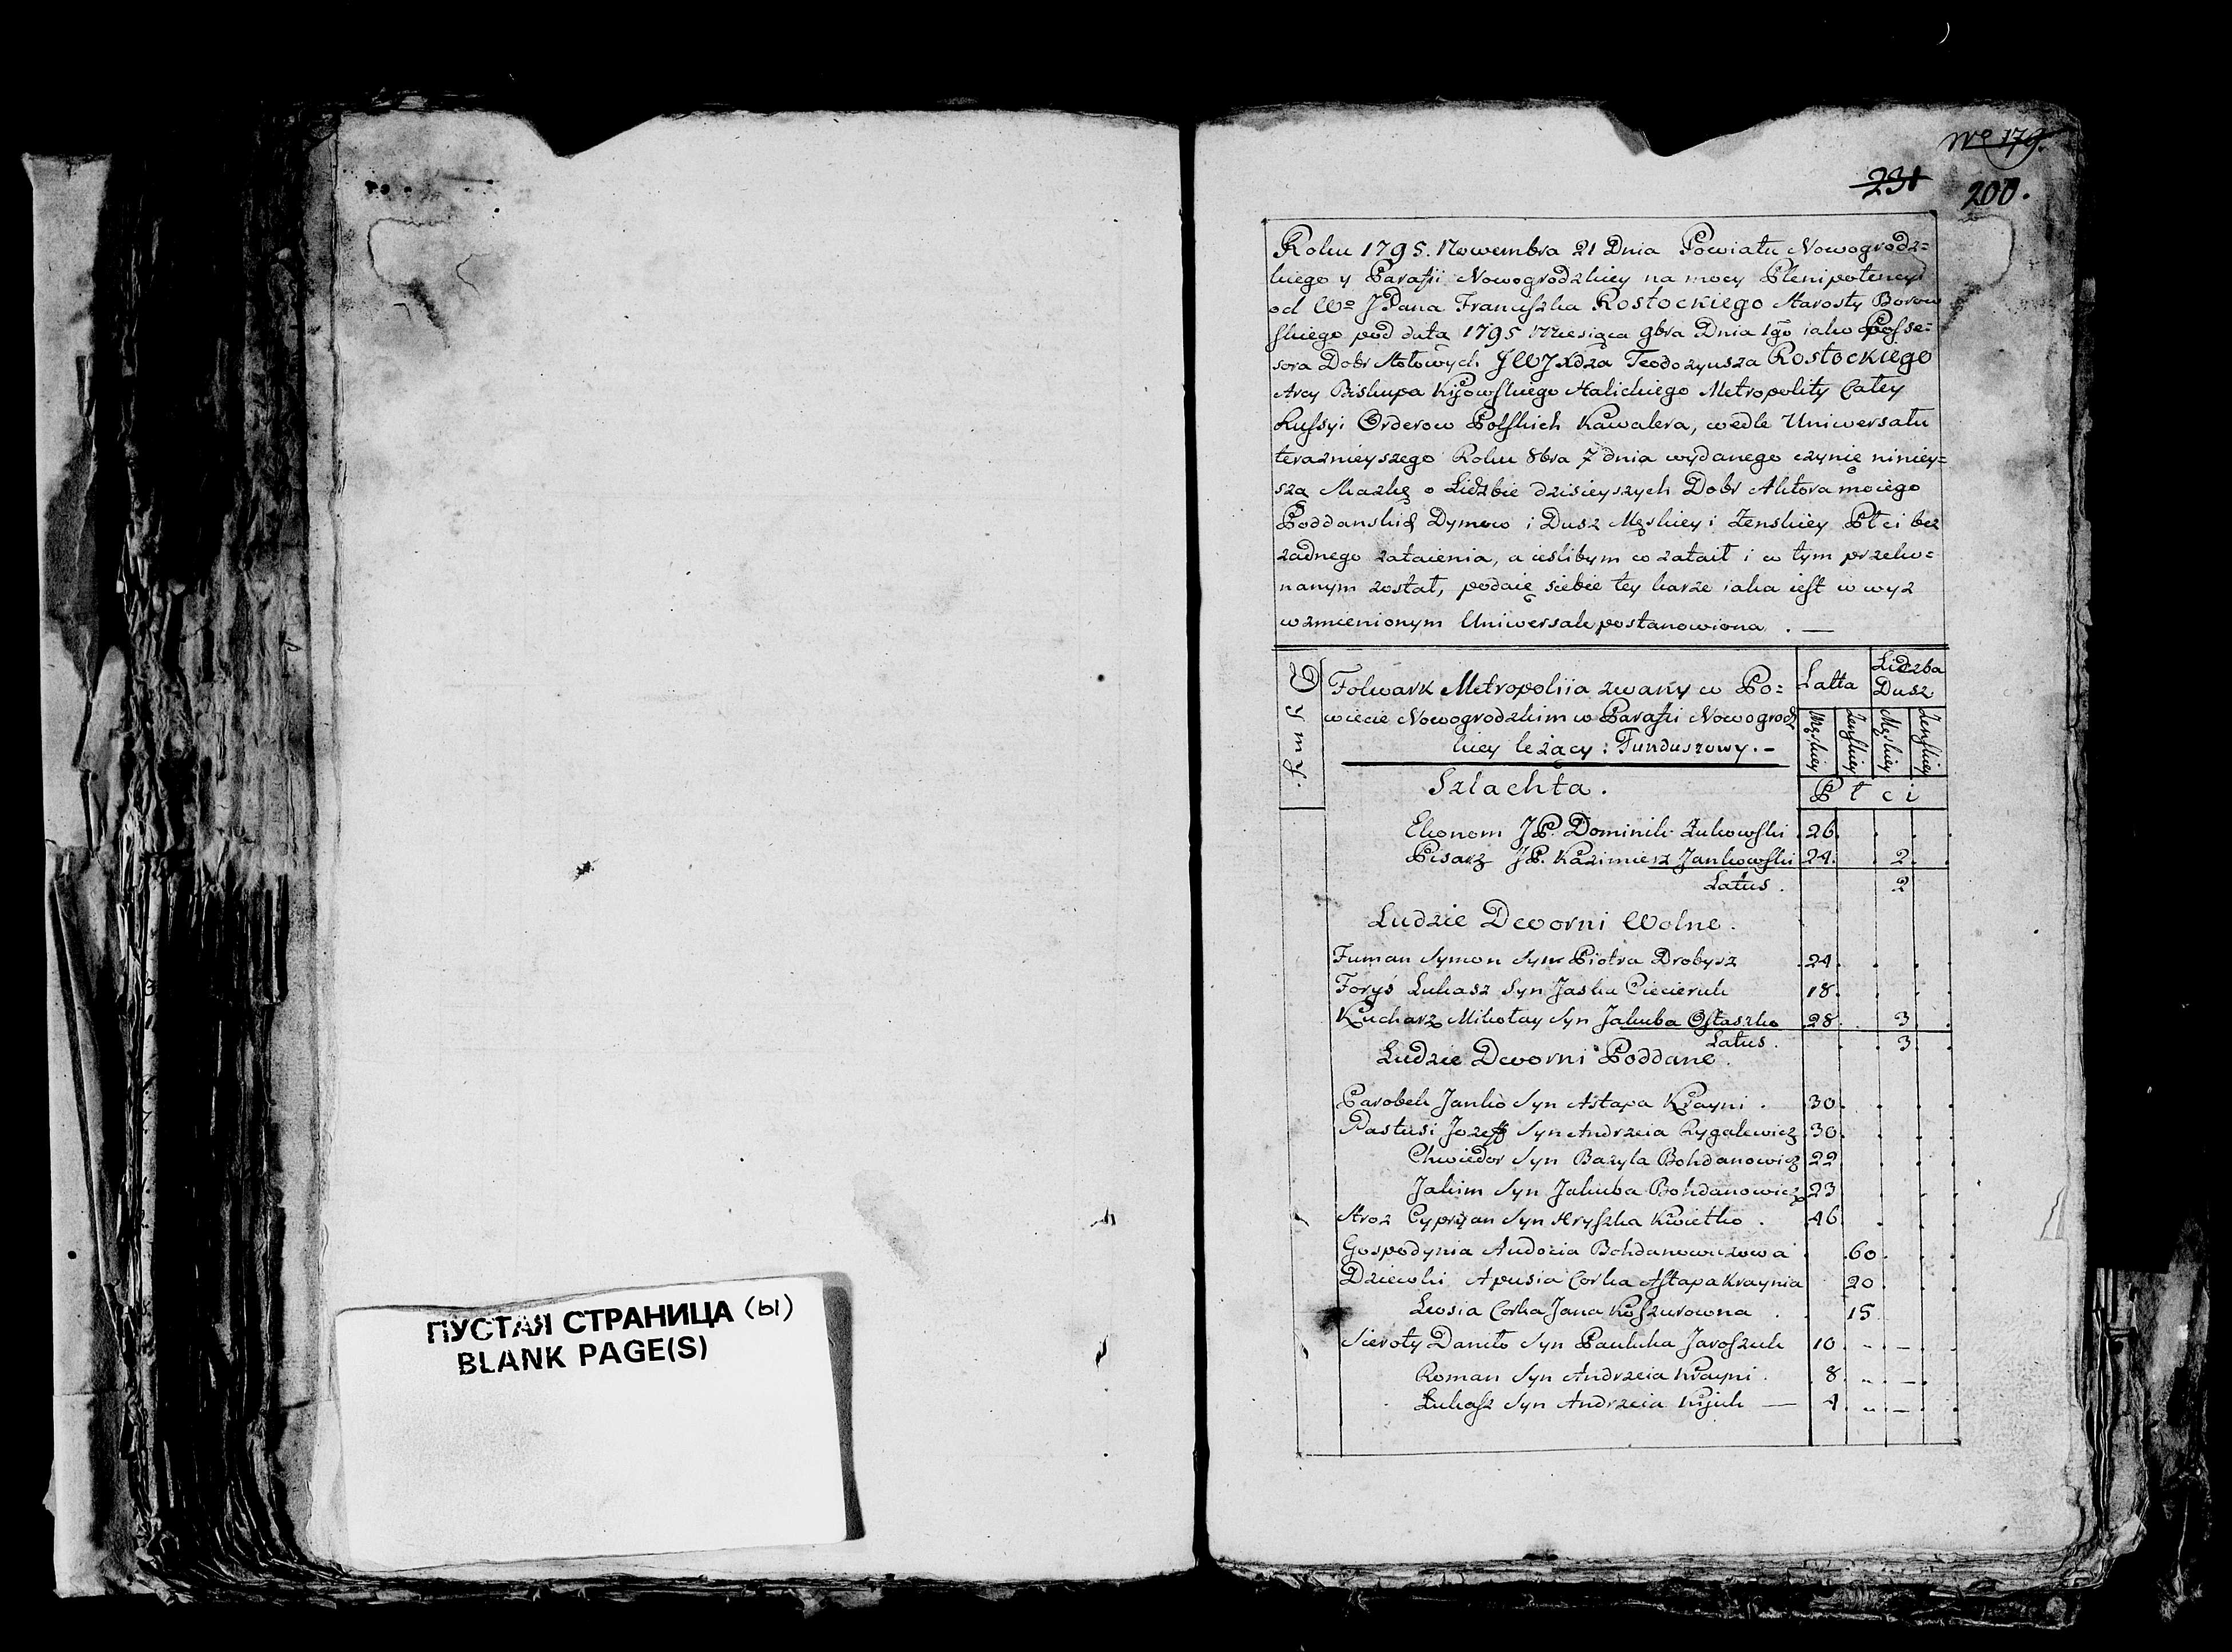 ПУСТАЯ СТРАНИЦА (ы)
BLANK PAGE(S)
No 179.
231 200.
Roku 1795. Nowembra 21 Dnia Powiatu Nowogrodz=
kiego y Parafii Nowogrodzkiey na mocy Plenipotencyi
od Wo JPana Franciszka Rostockiego Starosty Borow
skiego pod datą 1795 Miesiąca 9bra Dnia 1go iako Posse=
sora Dobr Stołowych JWJXdza Teodozyusza Rostockiego
Arcy Biskupa Kijowskiego Halickiego Metropolity Całey
Russyi Orderow Polskich Kawalera, wedle Uniwersału
teraznieyszego Roku 8bra 7 dnia wydanego czynię niniey=
szą Skazkę o Liczbie dzisieyszych Dobr Aktora mojego
Poddanskich Dymow i Dusz Męskiey i Żenskiey Płci bez
żadnego zataienia, a ieslibym co zataił i w tym przeko=
nanym został, podaię siebie tey karze iaka iest w wyż
wzmienionym Uniwersale postanowiona . —
Dymy.
Folwark Metropoliia zwany w Po=
wiecie Nowogrodzkim w Parafii Nowogrodz
kiey leżący: Funduszowy. –
Latta
Liczba
Dusz
Męskiey Żenskiey Męskiey Żenskiey
Płci
Szlachta.
Ekonom JP. Dominik Żukowski 26
Pisarz JP. Kazimierz Jankowski 24. 2.
Latus. 2
Ludzie Dworni Wolne.
Furman Symon Syn Piotra Drobysz 24
Foryś Łukasz Syn Jaska Ciecieruk 18.
Kucharz Mikołay Syn Jakuba Ostaszko 28 3
Latus. 3
Ludzie Dworni Poddane.
Parobek Janko Syn Astapa Krayni . 30
Pastusi Jozeff Syn Andrzeia Rygalewicz 30
Chwiedor Syn Bazyla Bohdanowicz 22
Jakim Syn Jakuba Bohdanowicz 23
Stroz Cypryan Syn Hryszka Kwietko . 46
Gospodynia Audocia Bohdanowiczowa 60
Dziewki Apusia Corka Astapa Kraynia 20
Lewsia Corka Jana 15
Sieroty Daniło Syn Pauluka Jaroszuk 10
Roman Syn Andrzeia Krayni . 8
Łukasz Syn Andrzeia Kijuk — 4